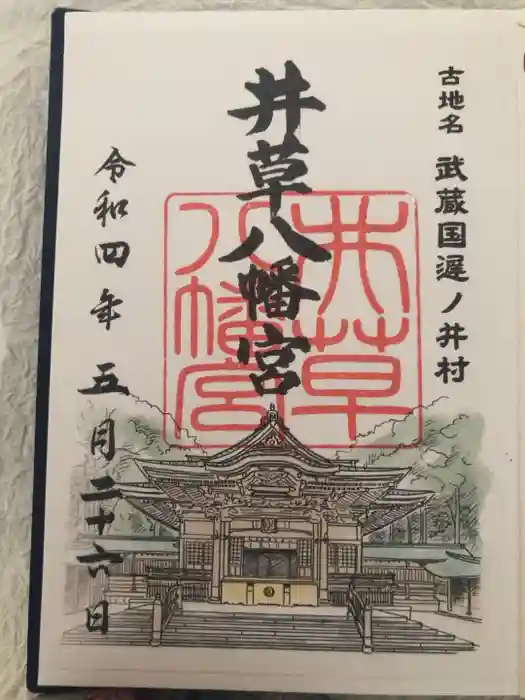 古地名 武蔵国遅ノ井村
井草八幡宮
井草
八幡宮
令和四年 五月二十六日